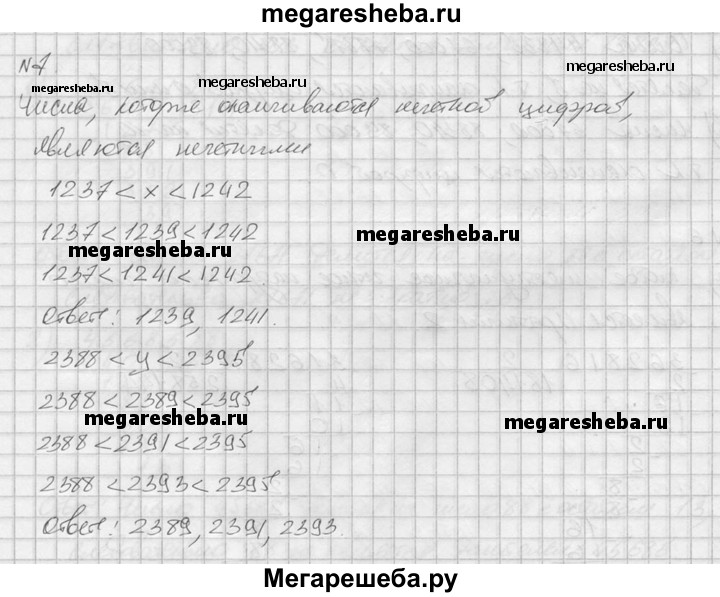 megaresheba.ru
№7
megaresheba.ru megaresheba.ru megaresheba.ru
Числа, которые оканчиваются нечетной цифрой,
являются нечетными
1237 < x < 1242
1237 < 1239 < 1242
megaresheba.ru megaresheba.ru
1237 < 1241 < 1242.
Ответ: 1239, 1241.
2388 < y < 2395
2388 < 2389 < 2395
megaresheba.ru megaresheba.ru
2388 < 2391 < 2395
2388 < 2393 < 2395
Ответ: 2389, 2391, 2393.
Мегарешеба.ру